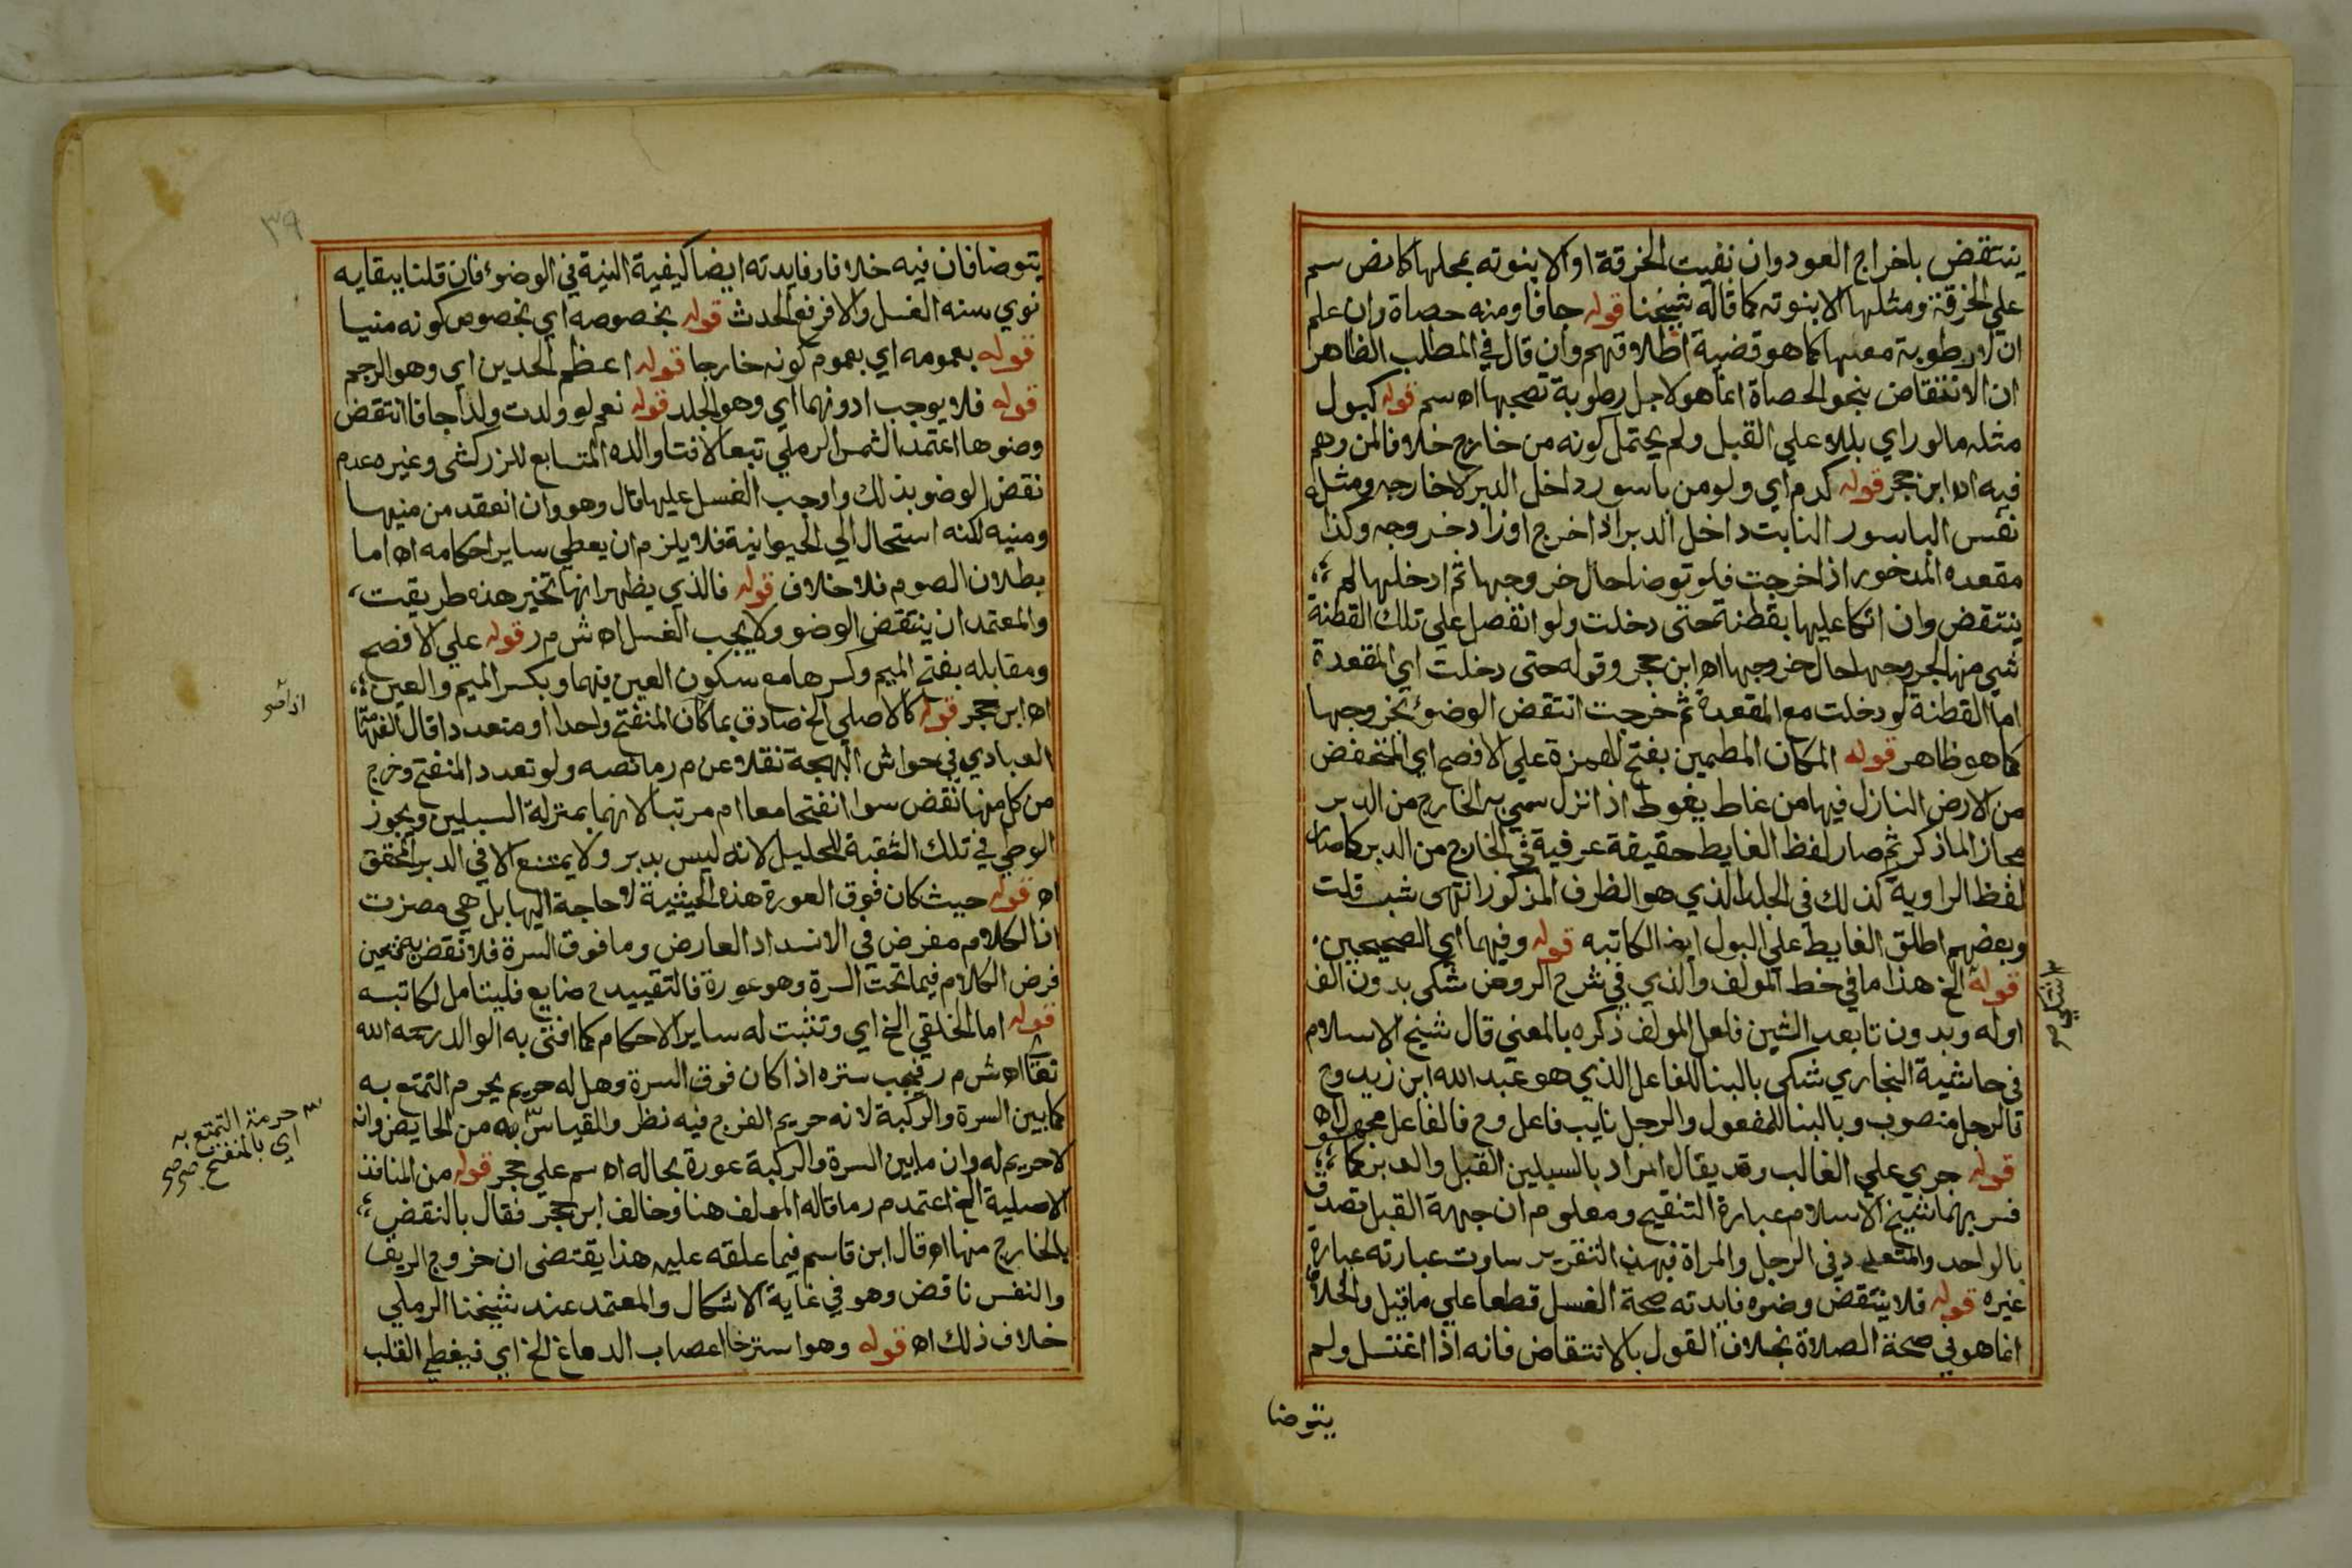 ينتقض باخراج العود وان نفيت الخرقة او الابنوته بمحلها كما نص سم
علي الخرقة ومثلها الابنوته كما قاله شيخنا قوله جافا ومنه حصاة وان علم
ان لا رطوبة معها كما هو قضية اطلاقهم وان قال في المطلب الظاهر
ان الانتقاض بنحو الحصاة انما هو لاجل رطوبة تصحبها اه سم قوله كبول
مثله ما لو راي بللا علي القبل ولم يحتمل كونه من خارج خلافا لمن وهم
فيه اه ابن حجر قوله كدم اي ولو من باسور داخل الدبر لا خارجه ومثله
نفس الباسور النابت داخل الدبر اذا خرج او زاد خروجه وكذا
مقعده المدخور اذا خرجت فلو توضا حال خروجها ثم ادخلها لم
ينتقض وان اتكا عليها بقطنة حتى دخلت ولو انفصل علي تلك القطنة
شي منها لخروجها حال خروجها اه ابن حجر وقوله حتى دخلت اي المقعدة
اما القطنة لو دخلت مع المقعدة ثم خرجت انتقض الوضوء بخروجها
كما هو ظاهر قوله المكان المطمين بفتح الهمزة علي الافصح اي المنخفض
من الارض النازل فيها من غاط يغوط اذا نزل سمي به الخارج من الدبر
مجازا لما ذكر ثم صار لفظ الغايط حقيقة عرفية في الخارج من الدبر كما صار
لفظ الراوية كذلك في الجلد الذي هو الظرف المذكور انتهى شب قلت
وبعضهم اطلق الغايط علي البول ايضا لكاتبه قوله وفيهما اي الصحيحين
قوله الخ هذا ما في خط المولف والذي في شرح الروض شكى بدون الف
اوله وبدون تا بعد الشين فلعل المولف ذكره بالمعني قال شيخ الاسلام
في حاشية البخاري شكى بالبنا للفاعل الذي هو عبد الله ابن زيد وح
فالرجل منصوب وبالبنا للمفعول والرجل نايب فاعل وح فالفاعل مجهول اه
قوله جري علي الغالب وقد يقال المراد بالسبيلين القبل والدبر كما
فسر بهما شيخ الاسلام عبارة التنقيح ومعلوم ان جهة القبل تصدق
بالواحد والمتعدد في الرجل والمراة فبهذا التقرير ساوت عبارته عبارة
غيره قوله فلا ينتقض وضوه فايدته صحة الغسل قطعا علي ما قيل والخلاف
انما هو في صحة الصلاة بخلاف القول بالانتقاض فانه اذا اغتسل ولم
يتوضا
٣٩
يتوضا فان فيه خلافا وفايدته ايضا كيفية النية في الوضوء فان قلنا ببقايه
نوي سنه الغسل والا فرفع الحدث قوله بخصوصه اي بخصوص كونه منيا
قوله بعمومه اي بعموم كونه خارجا قوله اعظم الحدين اي وهو الرجم
قوله فلا يوجب ادونهما اي وهو الجلد قوله نعم لو ولدت ولدا جافا انتقض
وضوها اعتمده الشمس الرملي تبعا لافتا والده المتابع للزركشي وغيره عدم
نقض الوضو بذلك واوجب الغسل عليها قال وهو وان انعقد من منيها
ومنيه لكنه استحال الي الحيوانية فلا يلزم ان يعطي ساير احكامه اه اما
بطلان الصوم فلا خلاف قوله فالذي يظهر انها تخير هذه طريقت
والمعتمد ان ينتقض الوضو ولا يجب الغسل اه ش م ر قوله علي الافصح
ومقابله بفتح الميم وكسرها مع سكون العين فيهما وبكسر الميم والعين
اه ابن حجر قوله كالاصلي الخ صادق بما كان المنفتح واحدا او متعددا قال الفهامة
العبادي في حواش البهجة نقلا عن م ر ما نصه ولو تعدد المنفتح وخرج
من كل منها نقض سوا انفتحا معا ام مرتبا لانهما بمنزلة السبيلين ويجوز
الوطي في تلك الثقبة للحليل لانه ليس بدبر ولا يمتنع الا في الدبر المحقق
اه قوله حيث كان فوق العورة هذه الحيثية لا حاجة اليها بل هي مضرت
اذ الكلام مفرض في الانسداد العارض وما فوق السرة فلا نقض به فتعين
فرض الكلام فيما تحت السرة وهو عورة فالتقييد ح ضايع فليتامل لكاتبه
قوله اما الخلقي الخ اي وتثبت له ساير الاحكام كما افتى به الوالد رحمه الله
تعا اه ش م ر فيجب ستره اذا كان فوق السرة وهل له حريم يحرم التمتع به
كما بين السرة والركبة لانه حريم الفرج فيه نظر والقياس به من الحايض وانه
لا حريم له وان ما بين السرة والركبة عورة بحاله اه سم علي حجر قوله من المنافذ
الاصلية الخ اعتمد م ر ما قاله المولف هنا وخالف ابن حجر فقال بالنقض
بالخارج منها اه قال ابن قاسم فيما علقه عليه هذا يقتضى ان خروج الريق
والنفس ناقض وهو في غاية الاشكال والمعتمد عند شيخنا الرملي
خلاف ذلك اه قوله وهو استرخا اعصاب الدماغ الخ اي فيغطي القلب
حرمة التمتع به
اي بالمنفتح